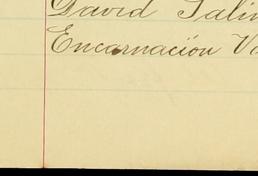 David Salin
Encarnación V